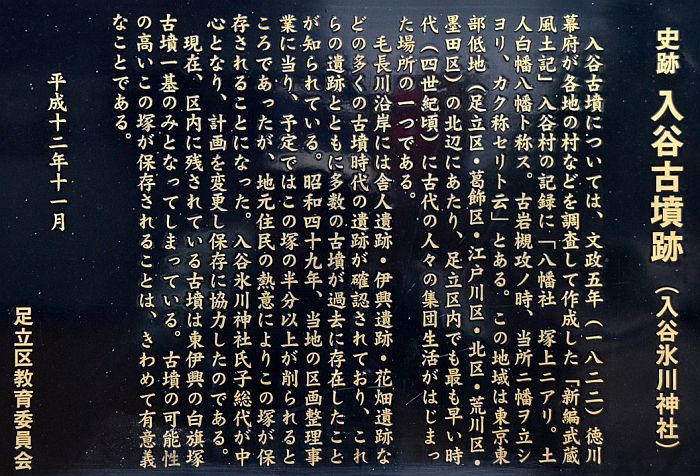 史跡 入谷古墳跡(入谷氷川神社)
入谷古墳については、文政五年(一八二二)徳川
幕府が各地の村などを調査して作成した「新編武蔵
風土記」入谷村の記録に「八幡社 塚上ニアリ。土
人白幡八幡ト称ス。古岩槻攻ノ時、当所ニ幡ヲ立シ
ヨリ、カク称セリト云」とある。この地域は東京東
部低地(足立区・葛飾区・江戸川区・北区・荒川区・
墨田区)の北辺にあたり、足立区内でも最も早い時
代(四世紀頃)に古代の人々の集団生活がはじまっ
た場所の一つである。
毛長川沿岸には舎人遺跡・伊興遺跡・花畑遺跡な
どの多くの古墳時代の遺跡が確認されており、これ
らの遺跡とともに多数の古墳が過去に存在したこと
が知られている。昭和四十九年、当地の区画整理事
業に当り、予定ではこの塚の半分以上が削られると
ころであったが、地元住民の熱意によりこの塚が保
存されることになった。入谷氷川神社氏子総代が中
心となり、計画を変更し保存に協力したのである。
現在、区内に残されている古墳は東伊興の白旗塚
古墳一基のみとなってしまっている。古墳の可能性
の高いこの塚が保存されることは、きわめて有意義
なことである。
平成十二年十一月
足立区教育委員会